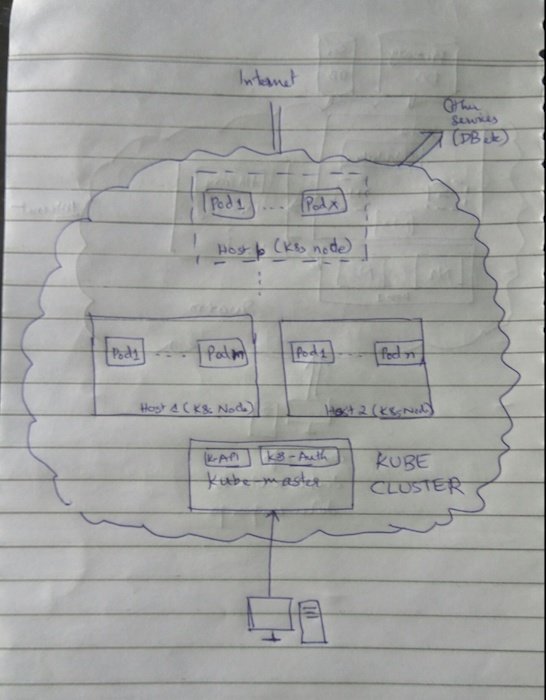 Internet
Other
services
(DB etc)
Pod1 ... Podx
Host p (K8s node)
Pod1 .... Podm
Pod1 ... Podn
Host 1 (K8s Node)
Host 2 (K8s Node)
K-API K8-Auth
Kube-master
KUBE
CLUSTER